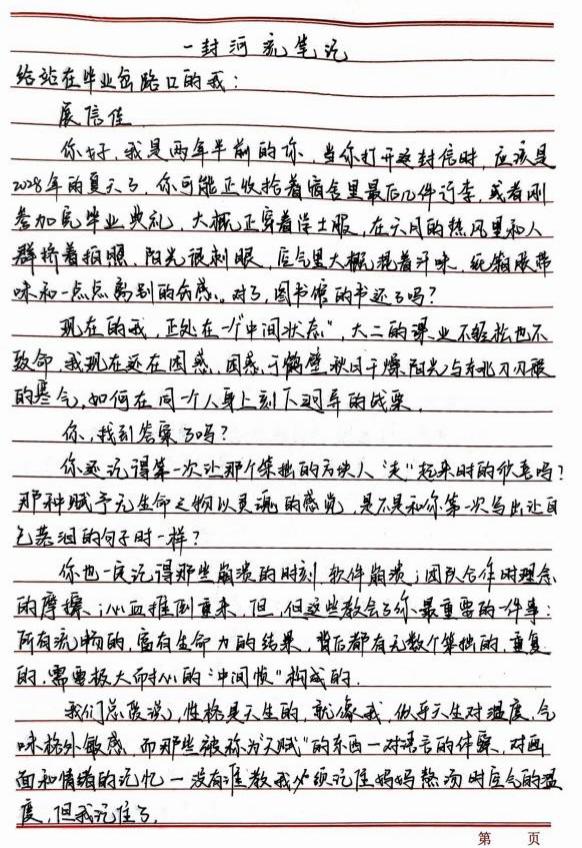 一封河流笔记
给站在毕业岔路口的我：
展信佳
你好，我是两年半前的你，当你打开这封信时，应该是
2028年的夏天了，你可能正收拾着宿舍里最后几件行李，或者刚
参加完毕业典礼，大概正穿着学士服，在六月的热风里和人
群挤着拍照，阳光很刺眼，空气里大概混着汗味，纸箱胶带
味和一点点离别的伤感。对了，图书馆的书还了吗？
现在的我，正处在一个"中间状态"，大二的课业不轻松也不
致命，我现在还在困惑，困惑于鹤壁秋日干燥阳光与东北刀刃般
的寒气，如何在同一个人身上刻下迥异的战栗。
你，找到答案了吗？
你还记得第一次让那个笨拙的方块人"走"起来时的狂喜吗？
那种赋予无生命之物以灵魂的感觉，是不是和你第一次写出让自
己落泪的句子时一样？
你也一定记得那些崩溃的时刻，软件崩溃；团队合作时理念
的摩擦；心血推倒重来，但，但这些教会了你最重要的一件事：
所有流畅的，富有生命力的结果，背后都有无数个笨拙的，重复
的，需要极大耐心的"中间帧"构成的。
我们总爱说，性格是天生的，就像我，似乎天生对温度，气
味格外敏感，而那些被称为"天赋"的东西一对语言的体察，对画
面和情绪的记忆一没有谁教我必须记住妈妈熬汤时空气的温
度，但我记住了。
第 页